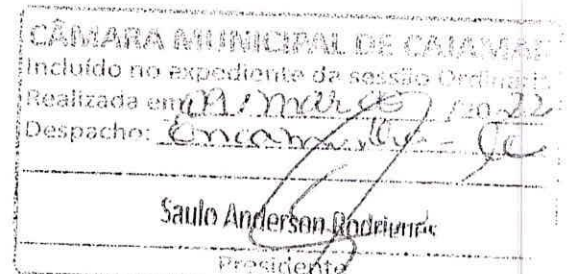 CÂMARA MUNICIPAL DE CAJAMAR
Incluído no expediente da sessão Ordinária
Realizada em março 22
Despacho: Encaminhe-se
Saulo Anderson Rodrigues
Presidente